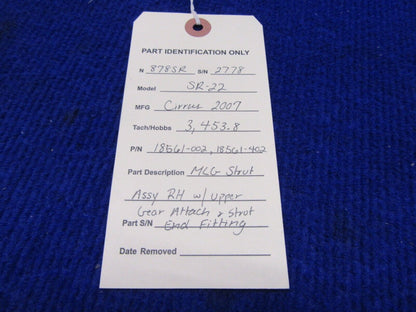 PART IDENTIFICATION ONLY
N 878SR S/N 2778
Model SR-22
MFG Cirrus 2007
Tach/Hobbs 3,453.8
P/N 18561-002, 18561-402
Part Description MLG Strut
Assy RH w/ upper
Gear Attach & Strut
Part S/N End Fitting
Date Removed